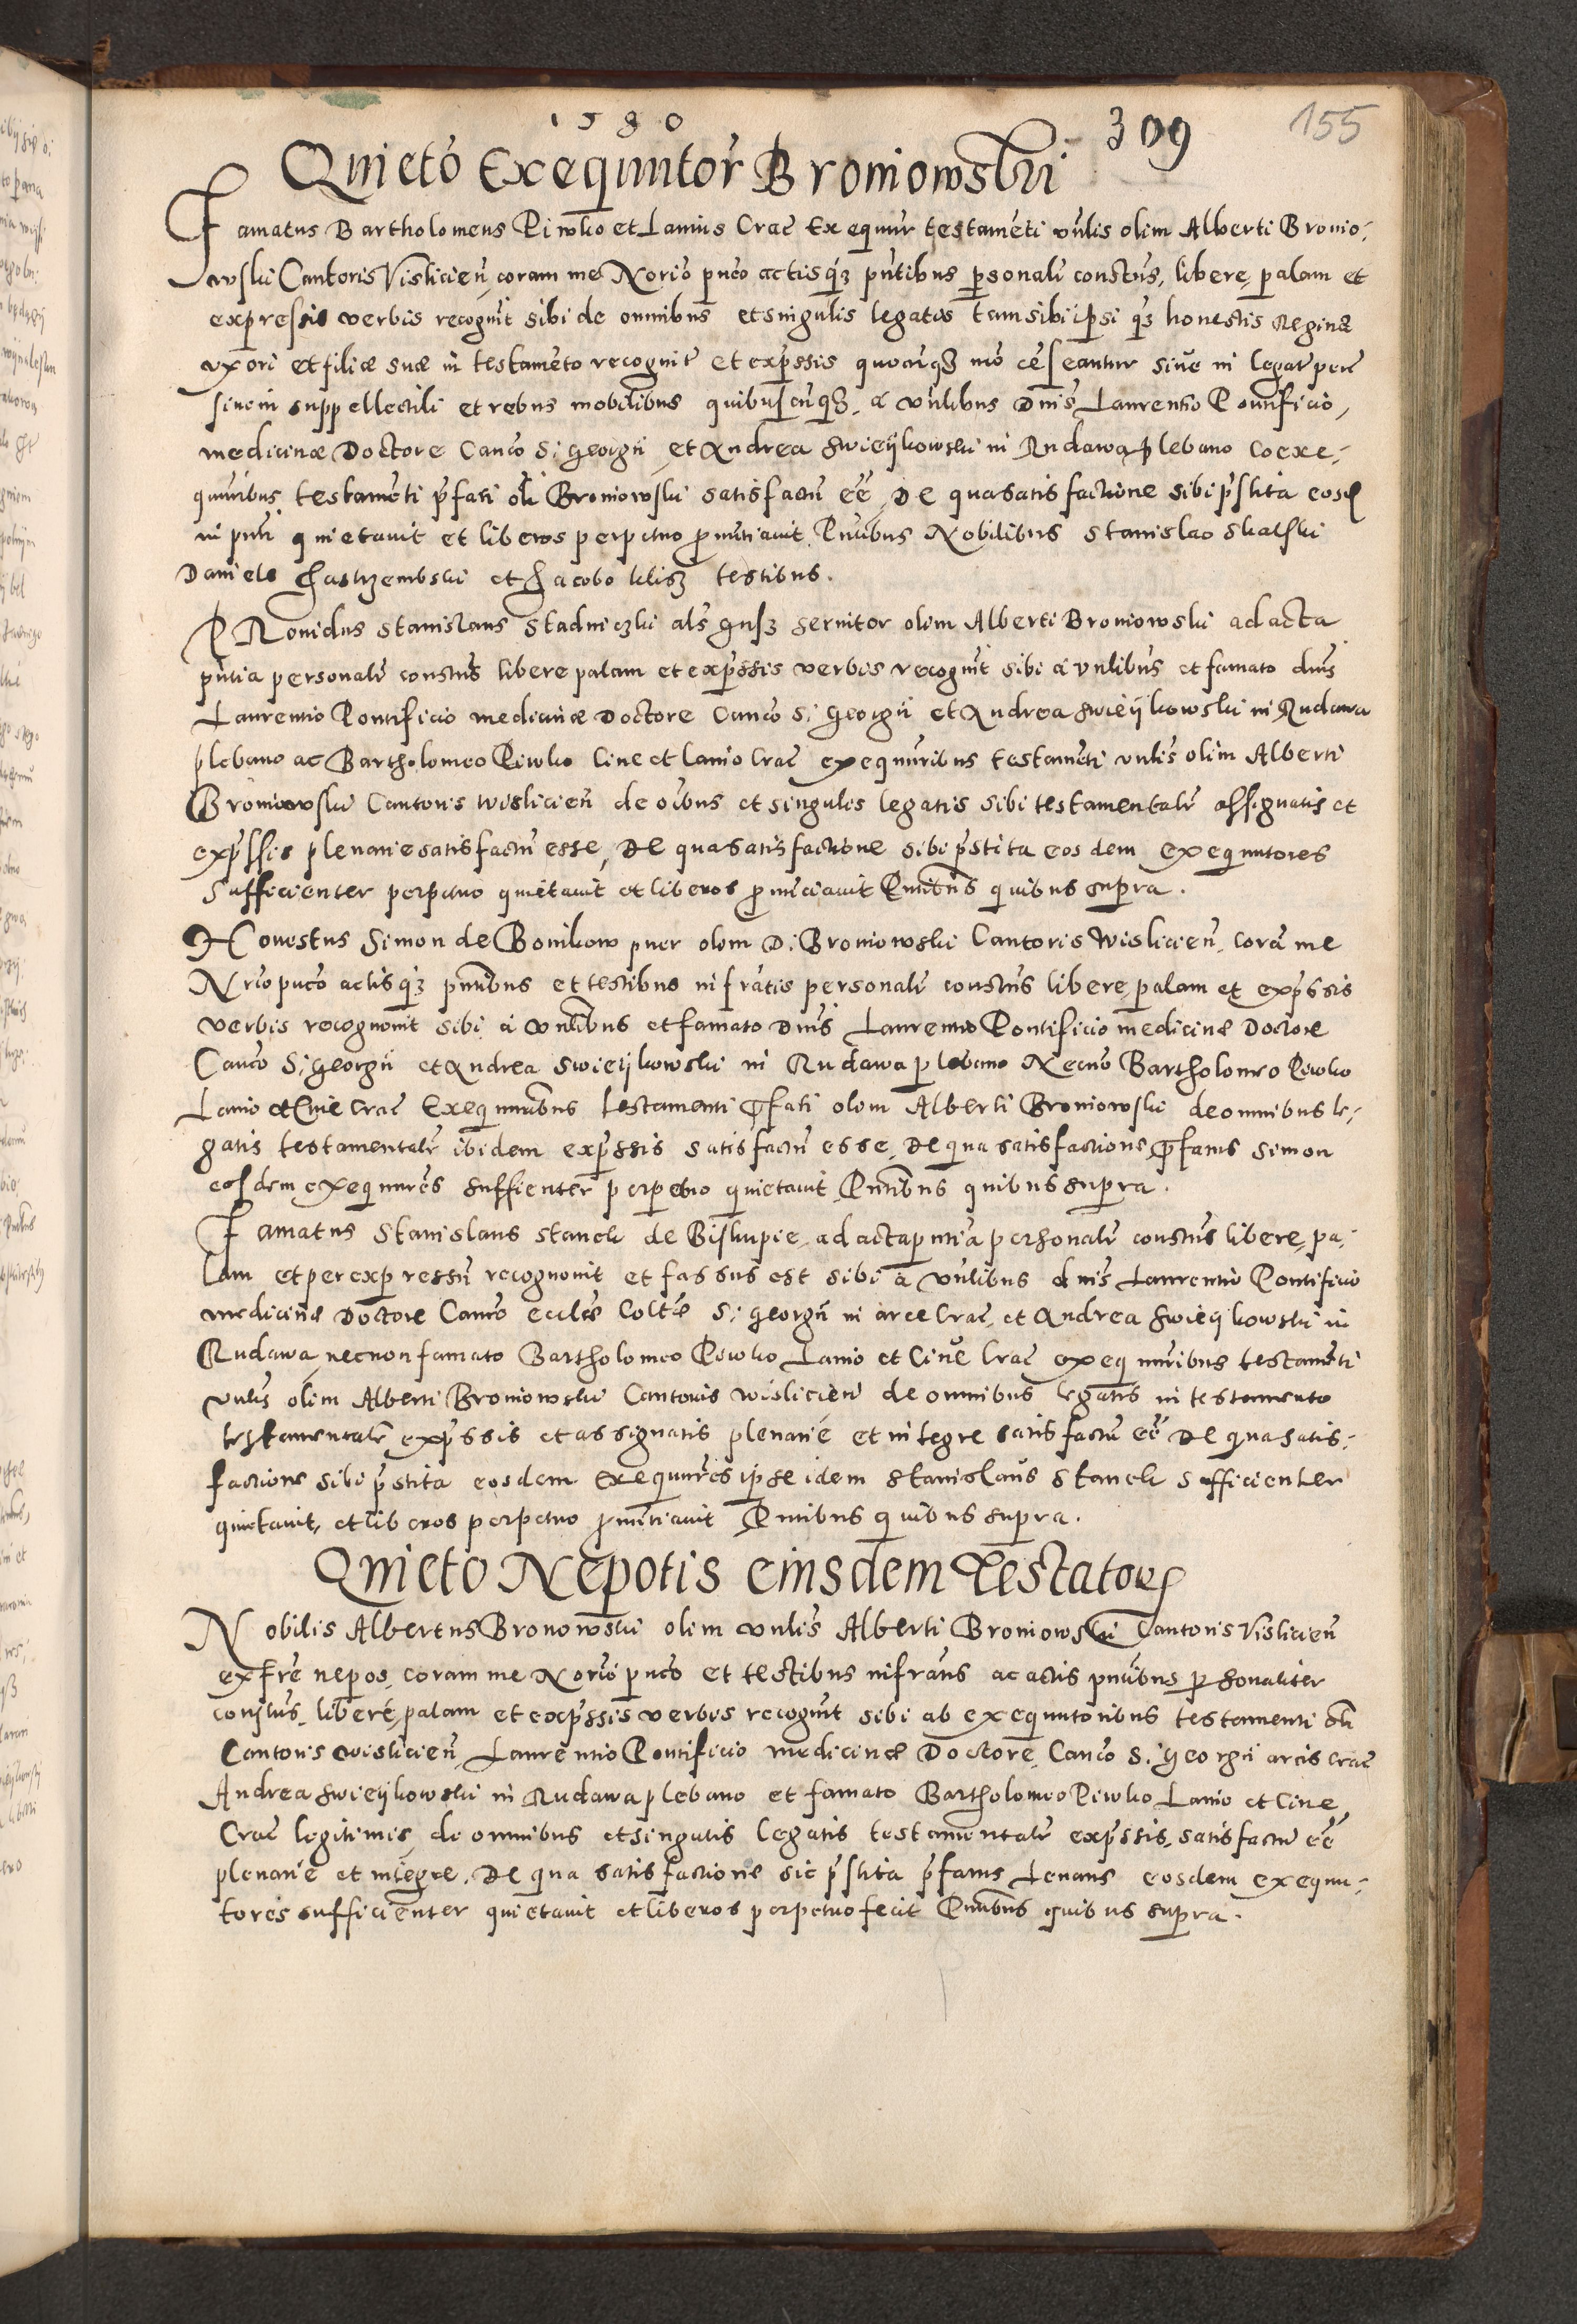 1580
309
155
Quieto Exequutor Broniowskii
Famatus Bartholomeus Piwko et Lanius Crac Exequur testameti vnlis olim Alberti Bronio:
wski Cantoris Vislicien, coram me Norio puco actisq3 pntibus psonalr constus, libere, palam et
expressis verbis recognit sibi de omnibus et singulis legatis tam sibi ipsi q3 honestis Reginæ
vxori et filiæ suæ in testameto recognit et exprssis quocunq3 mo ceseantur siue in legat pecu
siue in suppellectili et rebus mobilibus quibuscunq3, a vnlibus Dnis Laurentio Pontificio,
medicinæ Doctore Canco S: Georgii, et Andrea Swieijkowski in Rudawa plebano Coexe:
quuribus testamenti pfati oli Broniowski satisfactu ee, De qua satisfactione sibi pstita eosd
in pnti quietauit et liberos perpetuo pnuntiauit Pntibus Nobilibus Stanislao Skalski
Daniele Jastrzembski et Jacobo Klis3 testibus.
PRouidus Stanislaus Stadniczki als Gus3 seruitor olim Alberti Broniowski ad acta
pntia personalr constus libere palam et exprssis verbis recognit sibi a vnlibus et famato dnis
Laurentio Pontificio medicinæ Doctore Canco S: Georgii et Andrea Swieijkowski in Rudawa
plebano ac Bartholomeo Piwko Ciue et Lanio Crac exequuribus testameti vnlis olim Alberti
Broniowski Cantoris Wislicien de oibus et singulis legatis sibi testamentalr assignatis et
exprssis plenarie satisfactu esse, De qua satisfactione sibi pstita eosdem exequutores
sufficienter perpetuo quietauit et liberos pnunciauit Pntibus quibus supra.
Honestus Simon de Bonikow puer olim D: Broniowski Cantoris Wislicien, cora me
Nrio puco actisq3 pntibus et testibus infratis personalr constus libere, palam et exprssis
verbis recognouit sibi a vnlibus et famato Dnis Laurentio Pontificio medicinæ Doctore
Canco S: Georgii et Andrea Swieijkowski in Rudawa plebano Necno Bartholomeo Piwko
Lanio et Ciue Crac Exequuribus testamenti pfati olim Alberti Broniowski de omnibus le:
gatis testamentalr ibidem exprssis satisfactu esse, De qua satisfactione pfatus Simon
eosdem exequures suffienter perpetuo quietauit Pntibus quibus supra.
Famatus Stanislaus Stanek de Biskupie, ad acta pntia personalr constus libere, pa:
lam et per expressu recognouit et fassus est sibi a vnlibus dnis Laurentio Pontificio
medicinæ Doctore Canco eccles Coltæ S: Georgii in arce Crac, et Andrea Swieijkowski in
Rudawa, necnon famato Bartholomeo Piwko Lanio et Ciue Crac exequuribus testameti
vnlis olim Alberti Broniowski Cantoris Wislicien de omnibus legatis in testamento
testamentalr exprssis et assignatis plenarie et integre satisfactu ee De qua satis:
factione sibi pstita eosdem Exequures ipse idem Stanislaus Stanek sufficienter
quietauit, et liberos perpetuo pnuntiauit Pntibus quibus supra.
Quieto Nepotis eiusdem Testatoris
Nobilis Albertus Bronowski olim vnlis Alberti Broniowski Cantoris Vislicien
ex fre nepos, coram me Norio puco et testibus infratis ac actis pntibus psonaliter
constus, libere, palam et exprssis verbis recognit sibi ab exequutoribus testamenti oli
Cantoris Wislicien, Laurentio Pontificio medicinæ Doctore, Canco S: Georgii arcis Crac
Andrea Swieijkowski in Rudawa plebano et famato Bartholomeo Piwko Lanio et Ciue
Crac legitimis, de omnibus et singulis legatis testamentalr exprssis, satisfactu ee
plenarie et integre, De qua satisfactione sic pstita pfatus Lenaus eosdem exequu:
tores sufficienter quietauit et liberos perpetuo fecit Pntibus quibus supra.